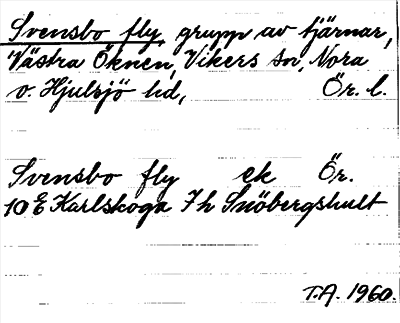 Svensbo fly, grupp av tjärnar,
Västra Öknen, Vikers sn, Nora
o. Hjulsjö hd, Ör. l.
Svensbo fly ek Ör.
10 E Karlskoga 7 h Snöbergshult
T.A. 1960.